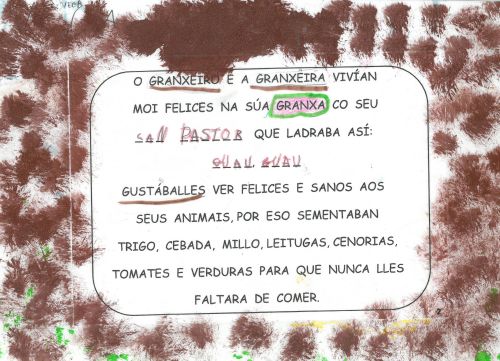 O GRANXEIRO E A GRANXEIRA VIVÍAN
MOI FELICES NA SÚA GRANXA CO SEU
CAN PASTOR QUE LADRABA ASÍ:
GUAU, GUAU
GUSTÁBALLES VER FELICES E SANOS AOS
SEUS ANIMAIS, POR ESO SEMENTABAN
TRIGO, CEBADA, MILLO, LEITUGAS, CENORIAS,
TOMATES E VERDURAS PARA QUE NUNCA LLES
FALTARA DE COMER.